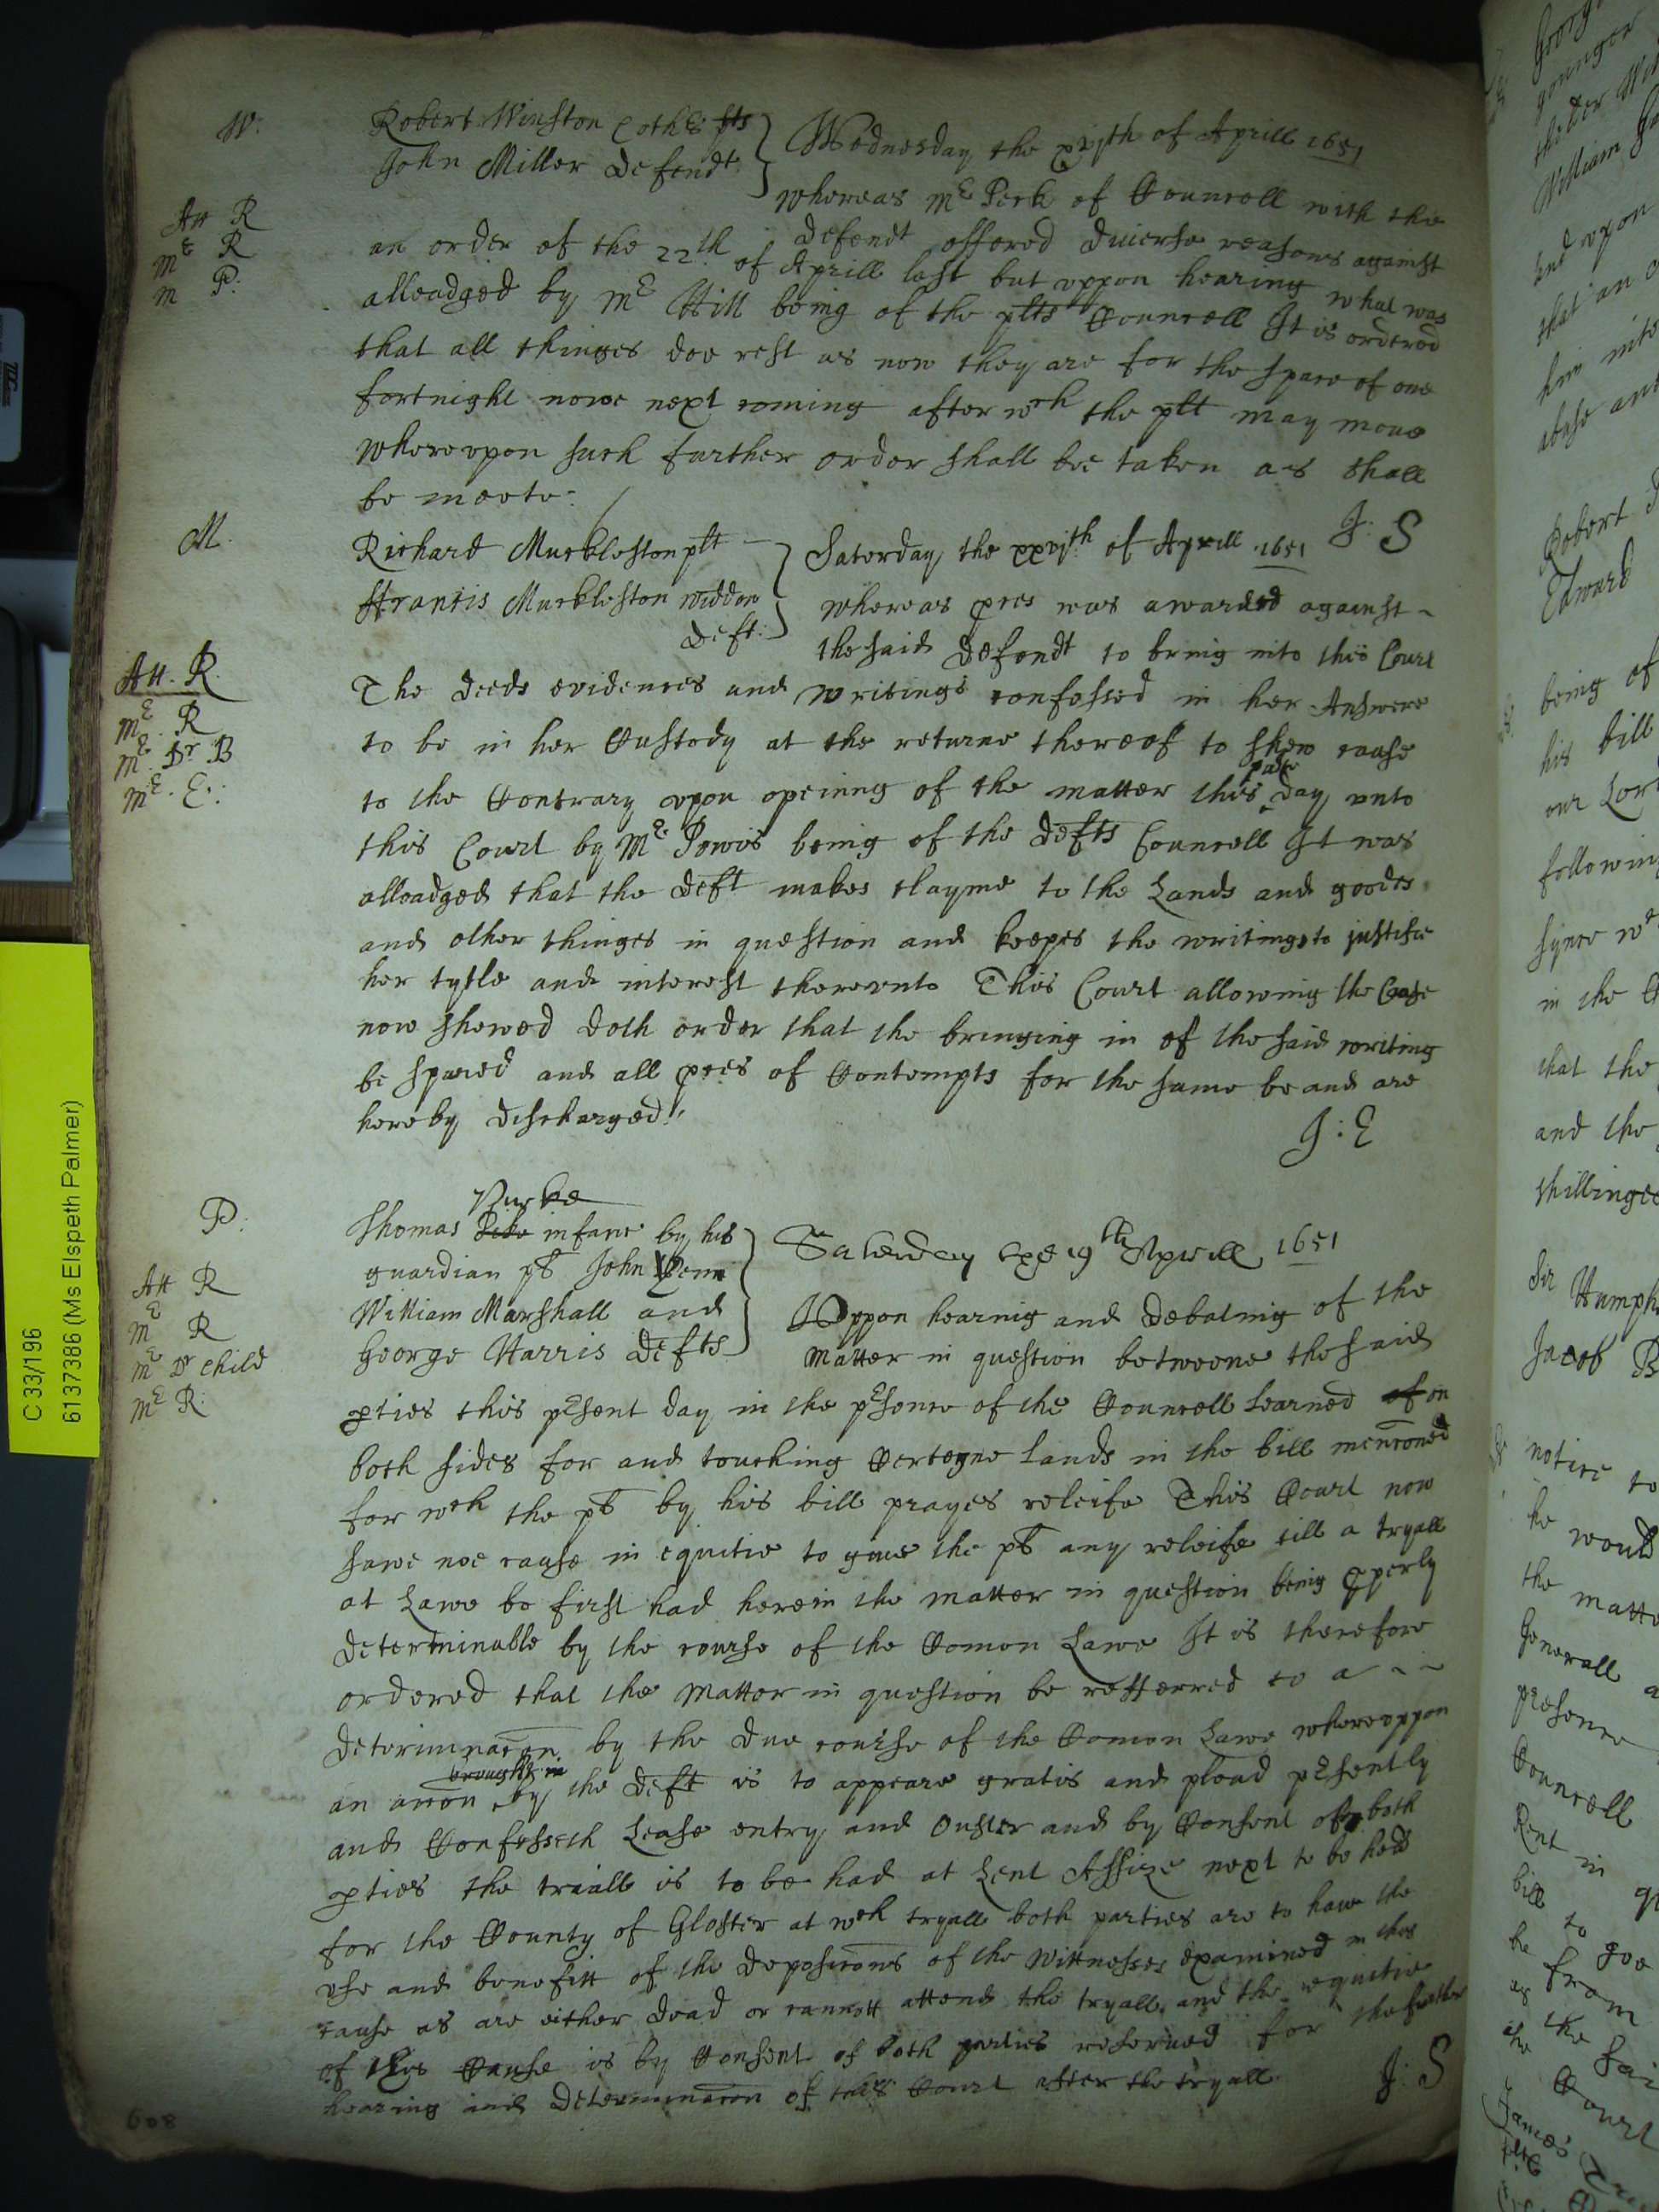 W:
Robert Winston & oth&s pts
John Miller Defendt
Wednesday the xvjth of Aprill 1651
Att R
Mr R
M P:
Whereas Mr Peck of Councell with the
Defendt offered diuerse reasons against
an order of the 22th of Aprill last but vppon hearing what was
alleadged by Mr Hill being of the plts Councell It is ordered
that all thinges doe rest as now they are for the space of one
fortnight nowe next coming after wch the plt may moue
wherevpon such further order shall bee taken as shall
be meete:
J: S
M.
Richard Muckleston plt
ffrancis Muckleston widdow
Deft:
Saterday the xxvjth of Aprill 1651
Att. R.
Mr. R
Mr. Dr B
Mr. E:
Whereas pces was awarded against
the said Defendt to bring into this Court
The Deeds evidences and writings confessed in her Answere
to be in her Custody at the returne thereof to shew cause
to the Contrary vpon opening of the matter this pnte day vnto
this Court by Mr Powis being of the Defts Councell It was
alleadged that the Deft makes clayme to the Lands and goodes
and other thinges in question and keepes the writings to justifie
her tytle and interest therevnto This Court allowing the Cause
now shewed doth order that the bringing in of the said writing
be spared and all pces of Contempts for the same be and are
hereby discharged
J: E
P:
Purke
Thomas Peke infant by his
guardian pt John Penn
William Marshall and
George Harris Defts
Saterday the 19th Aprill 1651
Att R
Mr R
Mr Dr Child
Mr R:
Vppon hearing and debating of the
matter in question betweene the said
pties this pesent day in the pesence of the Councell learned of on
both sides for and touching Certeyne lands in the bill mencioned
for wch the pt by his bill prayes releife This Court now
sawe noe cause in equitie to giue the pt any releife till a tryall
at Lawe be first had herein the matter in question being pperly
determinable by the course of the Comon Lawe It is therefore
ordered that the Matter in question be refferred to a
determinacon by the due course of the Comon Lawe wherevppon
an accon brought in by the Deft is to appeare gratis and plead pesently
and Confesseth Lease entry and Ouster and by Consent of both
pties the triall is to be had at Lent Assize next to be held
for the County of Gloster at wch tryall both parties are to haue the
vse and benefitt of the Deposicons of the Wittnesses examined in this
cause as are either dead or cannott attend the tryall and the equitie
of this Cause is by Consent of both parties reserued for the further
hearing and determinacon of this Court after the tryall
J: S
608
C 33/196
6137386 (Ms Elspeth Palmer)
younger
William
and vpon
that an
him into
Robert
Edward
being of
his bill
our Lor
following
in the
that the
and the
shillinges
Sr Humph
Jacob B
notice to
he would
the matte
Generall a
presence
Councell
Rent in
bill to goe
he from
as the sai
the Court
James